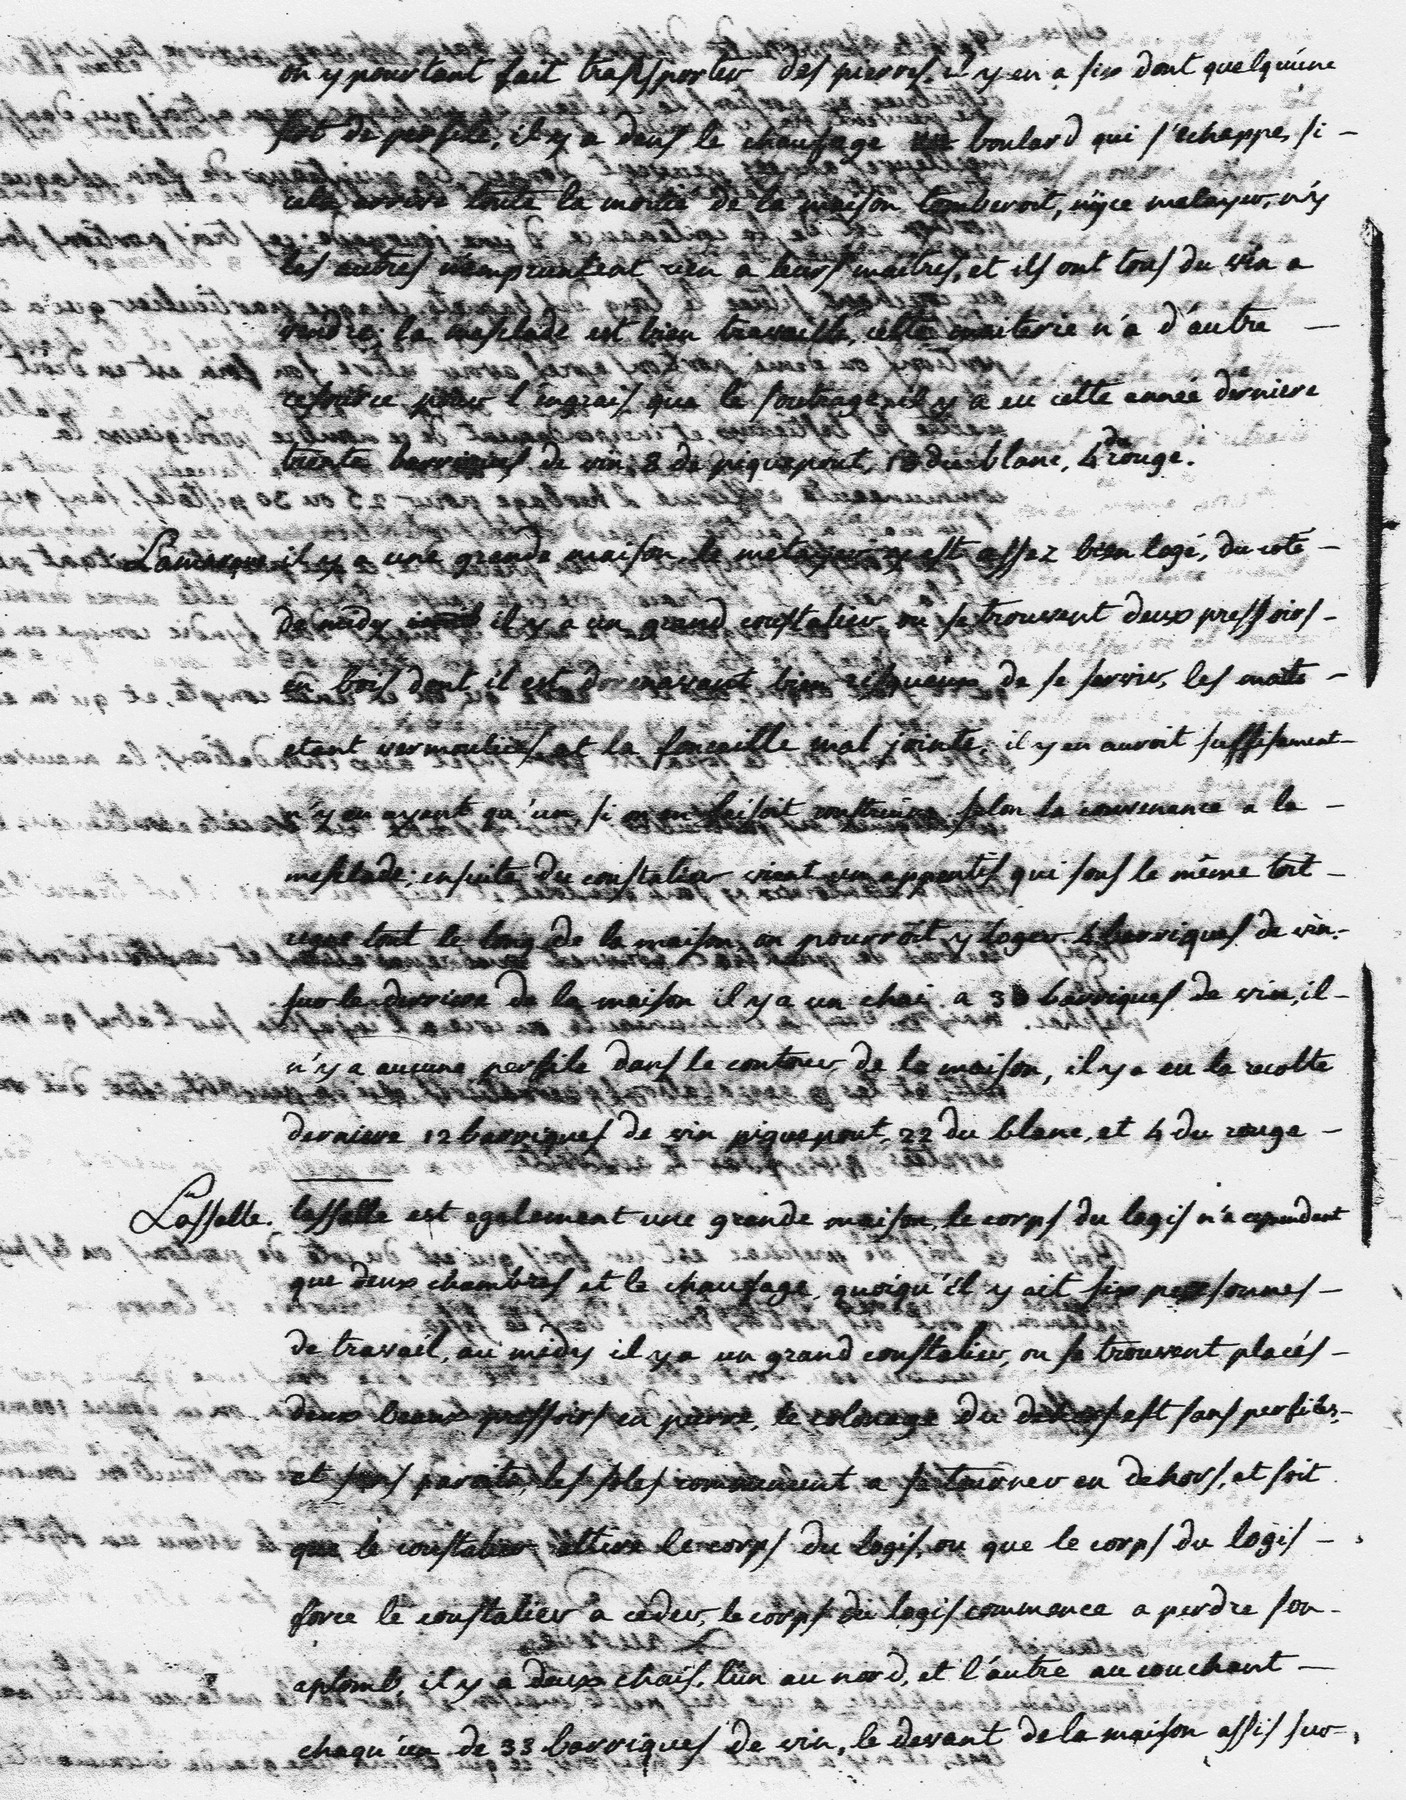 on y pourtant fait trasisporter des pierres, il y en a six dont quelqu'une
sert de persile; il y a dans le chaufage un boulard qui s'echappe, si
cela arrive toute la moitié de la maison tomberoit, ny ce metayer, n'y
les autres n'empruntent rien a leurs maitres, et ils ont tous du vin a
vendre; la mesclade est bien travaillé, cette maiterie n'a d'autre
resource pour l'ingrais que le soutrage, il y a eu cette année derniere
trente barriques de vin, 8 de piquepout, 18 du blanc, 4 du rouge.
Lamarque il y a une grande maison, le metayer y est assez bien logé, du coté
de midy il y a un grand coustalier ou se trouvent deux pressoirs
en bois dont il est dormavant bien de se servir, les matte
etant vermoulues et la foncaille mal jointe, il y en auroit suffisament
n'y en ayant qu'un, si on en faisoit construire selon la convenance a la
mesclade; ensuite du coustalier vient un appentis qui sous le même toit
regne tout le long de la maison, on pourroit y loger 4 barriques de vin.
sur le derriere de la maison il y a un chai a 30 barriques de vin, il
n'y a aucune persile dans le contour de la maison, il y a eu la recolte
derniere 12 barriques de vin piquepout, 22 du blanc, et 4 du rouge
Lassalle. lassalle est egalement une grande maison, le corps du logis n'a cependent
que deux chambres et le chaufage, quoiqu'il y ait six personnes
de travail, au midy il y a un grand coustalier, ou se trouvent placés
deux beaux pressoirs en pierre, le colonage du dehors est sans persiles,
et sans paroits, les soles commencent a se tourner en dehors, et soit
que le coustalier attire le corps du logis, ou que le corps du logis
force le coustalier a ceder, le corps du logis commence a perdre son
aplomb, il y a deux chais, l'un au nord, et l'autre au couchant
chaqu'un de 33 barriques de vin, le devant de la maison assis sur